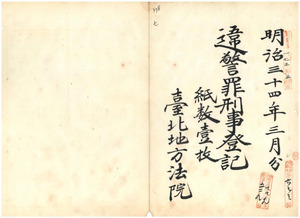 明治三十四年三月分
違警罪刑事登記
紙数壹枚
臺北地方法院